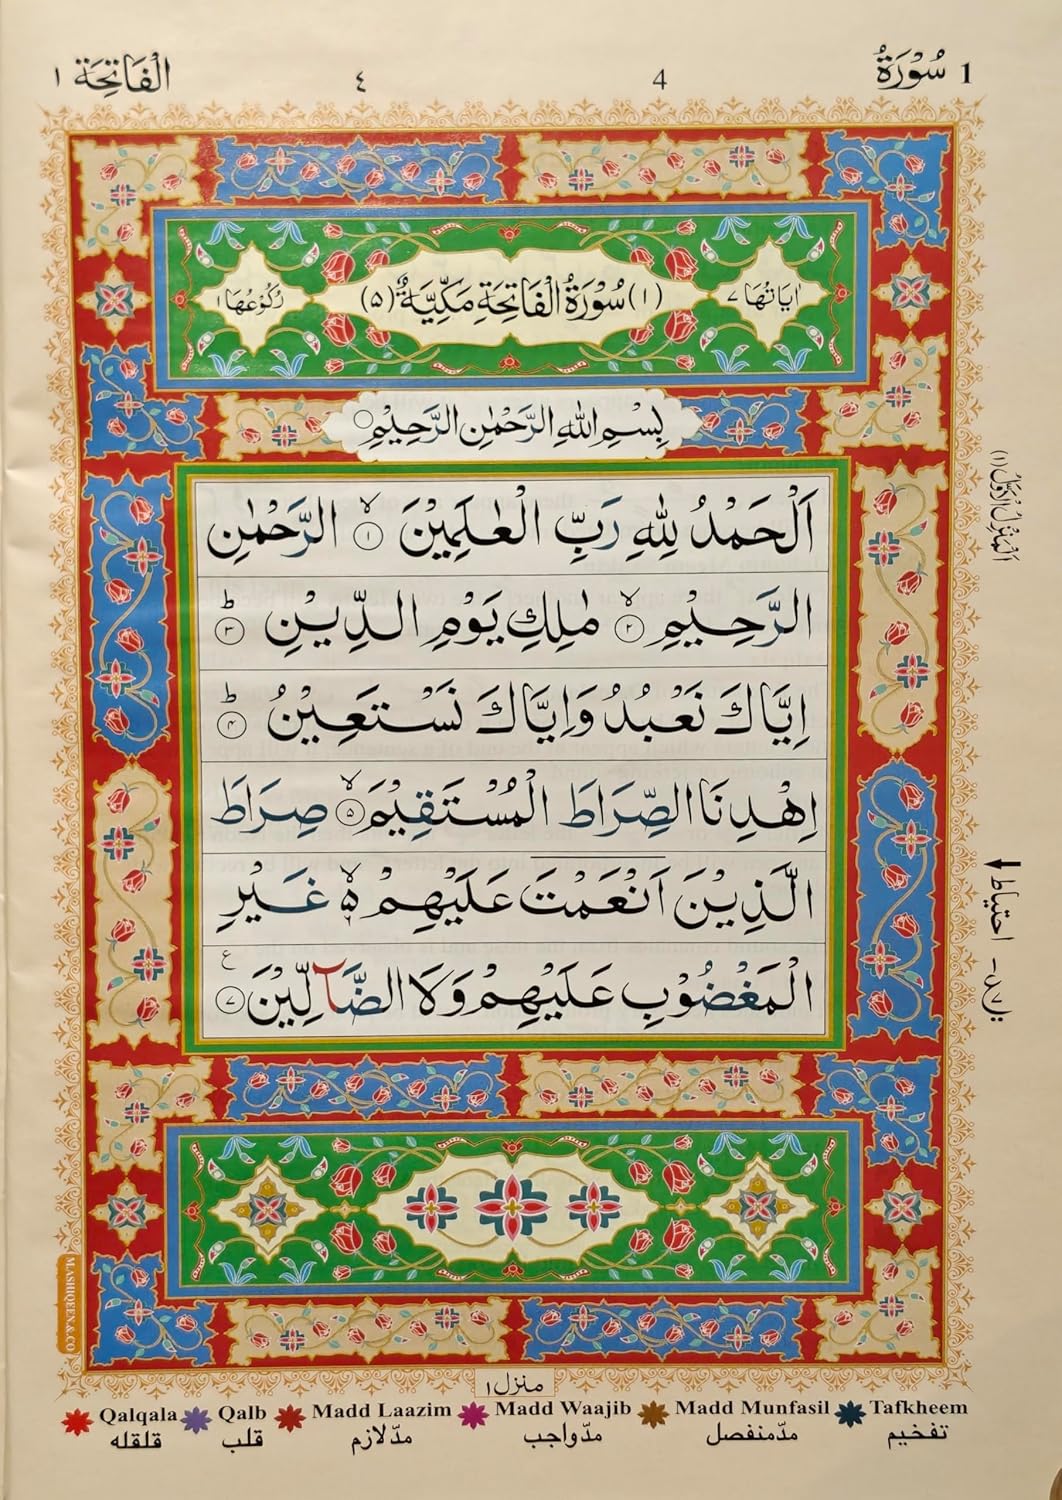 1 سُوْرَةُ
4
٤
الْفَاتِحَة ١
اٰيَاتُهَا ٧
(١) سُوْرَةُ الْفَاتِحَةِ مَكِّيَّةٌ (٥)
رُكُوْعُهَا ١
بِسْمِ اللّٰهِ الرَّحْمٰنِ الرَّحِيْمِ
اَلْحَمْدُ لِلّٰهِ رَبِّ الْعٰلَمِيْنَ ۙ ١ الرَّحْمٰنِ
الرَّحِيْمِ ۙ ٢ مٰلِكِ يَوْمِ الدِّيْنِ ؕ ٣
اِيَّاكَ نَعْبُدُ وَاِيَّاكَ نَسْتَعِيْنُ ؕ ٤
اِهْدِنَا الصِّرَاطَ الْمُسْتَقِيْمَ ۙ ٥ صِرَاطَ
الَّذِيْنَ اَنْعَمْتَ عَلَيْهِمْ ۙ۬ ٦ غَيْرِ
الْمَغْضُوْبِ عَلَيْهِمْ وَلَا الضَّآلِّيْنَ ع ٧
اَلْمَنْزِلُ الْاَوَّلُ (١)
احتياط
منزل ١
MASHQEEN.A.CO
Qalqala Qalb Madd Laazim Madd Waajib Madd Munfasil Tafkheem
تفخيم مدّ منفصل مدّ واجب مدّ لازم قلب قلقله